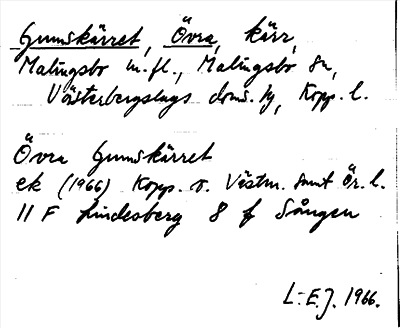 Gumskärret, Övra, kärr,
Malingsbo m.fl., Malingsbo sn,
Västerbergslags doms. hg, Kopp. l.
Övra Gumskärret
ek (1966) Kopp. o. Västm. samt Ör. l.
11 F Lindesberg 8 f Sången
L-E.J. 1966.